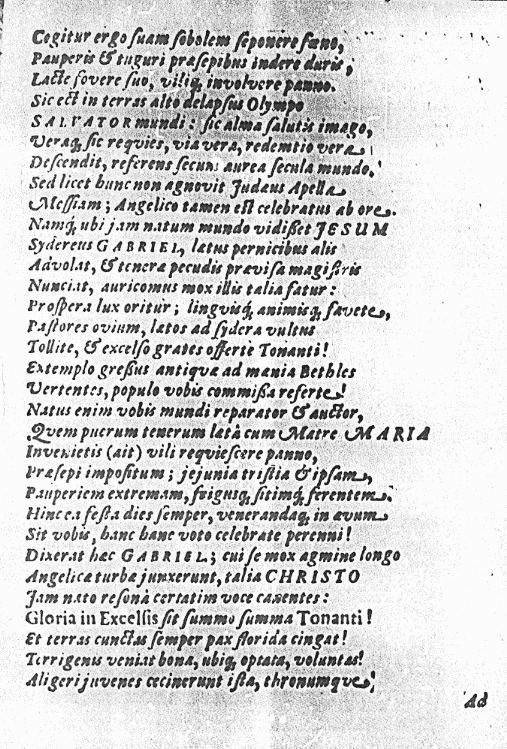 Cogitur ergo ſuam ſobolem ſeponere fœno,
Pauperis & tuguri præſepibus indere duris,
Lacte fovere ſuo, viliq́, involvere panno.
Sic eſt in terras alto delapſus Olympo
SALVATOR mundi: ſic alma ſalutis imago,
Veraq́, ſic requies, via vera, redemtio vera
Deſcendit, referens ſecum aurea ſecula mundo.
Sed licet hunc non agnovit Judæus Apella
Meſſiam; Angelico tamen eſt celebratus ab ore.
Namq́, ubi jam natum mundo vidißet JESUM
Sydereus GABRIEL, latus pernicibus alis
Advolat, & tenera pecudis præviſa magiſtris
Nunciat, auricomus mox illis talia fatur:
Proſpera lux oritur; linguisq́, animisq́, favete,
Paſtores ovium, latos ad ſydera vultus
Tollite, & excelſo grates offerte Tonanti!
Extemplo greßus antiqua ad mænia Bethles
Vertentes, populo vobis commißa referte!
Natus enim vobis mundi reparator & auctor,
Quem puerum tenerum latà cum Matre MARIA
Invenietis (ait) vili requieſcere panno,
Præſepi impoſitum; jejunia triſtia & ipſam,
Pauperiem extremam, frigusq́, ſitimq́, ferentem.
Hinc ea feſta dies ſemper, venerandaq́, in ævum
Sit vobis, hanc hanc voto celebrate perenni!
Dixerat hæc GABRIEL; cui ſe mox agmine longo
Angelica turba junxerunt, talia CHRISTO
Jam nato reſonâ certatim voce canentes:
Gloria in Excelſis ſit ſummo ſumma Tonanti!
Et terras cunctas ſemper pax florida cingat!
Terrigenis veniat bona, ubiq́, optata, voluntas!
Aligeri juvenes cecinerunt iſta, thronumque
Ad